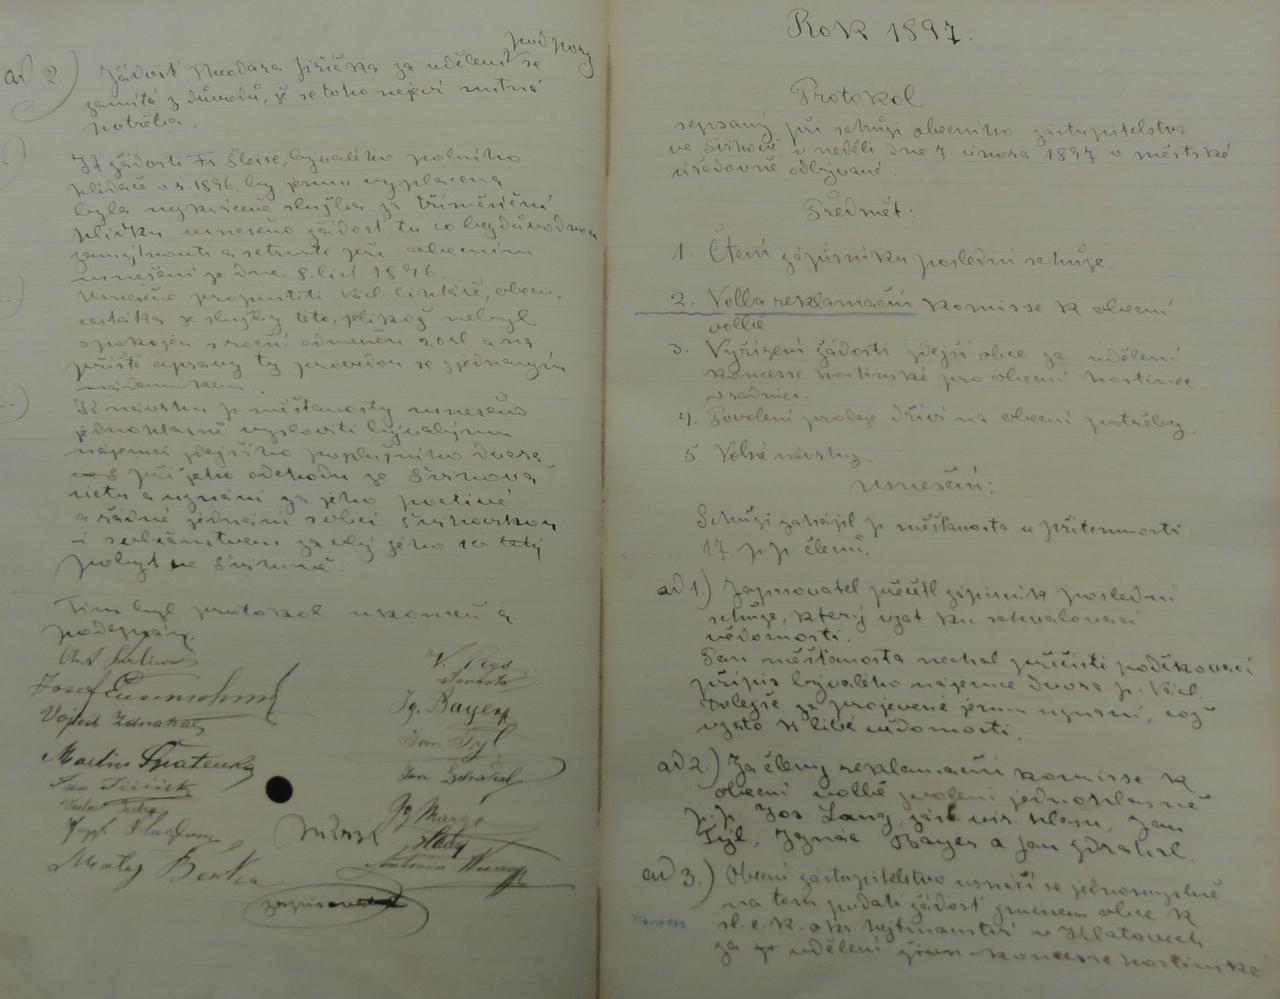 podpory
ad 2.) Žádost Theodora Jiříčka za udělení se
zamítá z důvodů, že se toho nejeví nutná
potřeba.
žádosti Fr. Šleise, bývalého polního
hlídače v r. 1896, by jemu vyplacena
byla služba za tříměsíční
hlídku usneseno žádost tu co bezdůvodnou
zamítnouti a setrvati při obecním
usnešení ze dne 8. list. 1896.
Usneseno propustiti obecn.
ze služby této, jelikož nebyl
spokojen s roční odměnou 20 zl. a na
příště opravy ty provedou se zjednaným
nádenníkem.
K návrhu p. měšťanosty usneseno
jednohlasně vysloviti bývalému
nájemci zdejšího poplužního dvora
při jeho odchodu ze Švihova
úctu a uznání za jeho poctivé
a řádné jednání s obcí Švihovskou
i s občanstvem za celý jeho 10 letý
pobyt ve Švihově.
Tím byl protokol ukončen a
podepsán.
Josef
Vojtěch Zdrahal
Martin Špatenka
Jan Jiříček
Josef
Matěj Benka
V. Rys
starosta
Ig. Bayer
Jan Týl
Jan Zdráhal
Ig. Margo
Antonín
zapisovatel
Rok 1897.
Protokol
sepsaný při schůzi obecního zastupitelstva
ve Švihově v neděli dne 7. února 1897 v městské
úřadovně odbývané.
Předmět:
1. Čtení zápisníku poslední schůze.
2. Volba reklamační komisse k obecní
volbě
3. Vyřízení žádosti zdejší obce za udělení
koncesse hostinské pro obecní hostinec
v radnici.
4. Povolení prodeje dříví na obecní potřeby.
5. Volné návrhy.
Usnešení:
Schůzi zahájil p. měšťanosta u přítomnosti
17. p. p. členů.
ad 1.) Zapisovatel přečetl zápisník poslední
schůze, který vzat ku schvalovací
vědomosti.
Pan měšťanosta nechal přečísti poděkovací
přípis bývalého nájemce dvora p. Václ.
Doležše za projevené jemu uznání, což
vzato k libé vědomosti.
ad 2.) Za členy reklamační komisse k
obecní volbě zvoleni jednohlasně
p. p. Jos. Lang, hlasu, Jan
Týl, Ignác Bayer a Jan Zdrahal.
ad 3.) Obecní zastupitelstvo usnáší se jednomyslně
na tom podati žádost jménem obce k
sl. c. k. okr. hejtmanství v Klatovech
za udělení koncesse hostinské